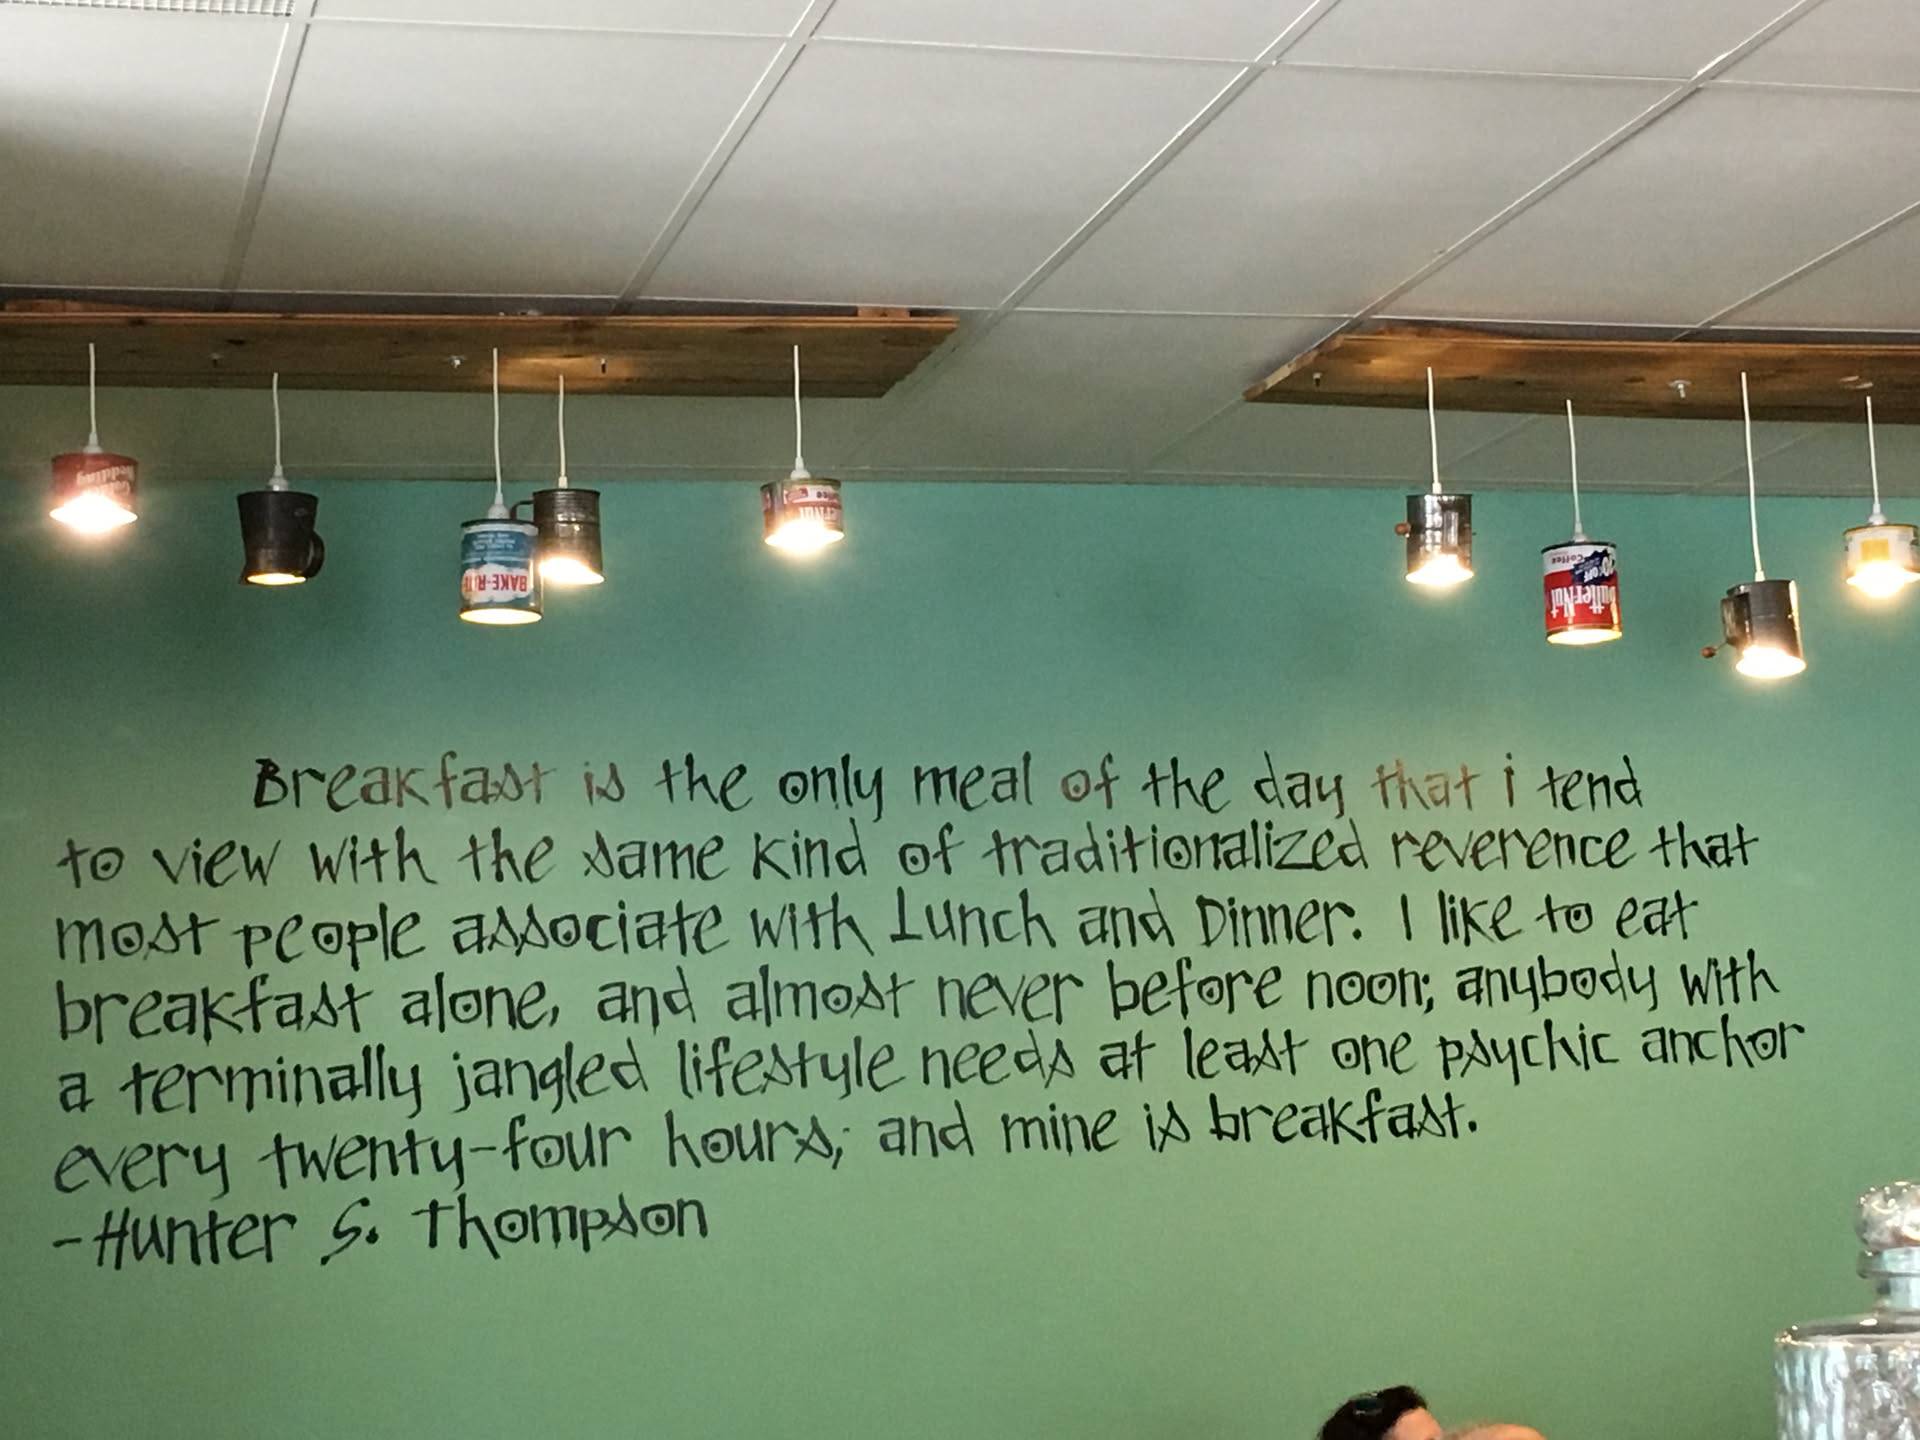 Hills
Reddiwg
BAKE-RITE
Coffee
ButterNut
Coffee
20¢ OFF
ButterNut
Breakfast is the only meal of the day that i tend
to view with the same kind of traditionalized reverence that
most people associate with Lunch and Dinner. I like to eat
breakfast alone, and almost never before noon; anybody with
a terminally jangled lifestyle needs at least one psychic anchor
every twenty-four hours; and mine is breakfast.
-Hunter S. Thompson